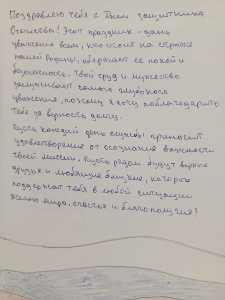 Поздравляю тебя с Днем защитника
Отечества! Этот праздник - дань
уважения всем, кто стоит на страже
нашей Родины, оберегает её покой и
безопасность. Твой труд и мужество
заслуживают самого глубокого
уважения, поэтому я хочу поблагодарить
тебя за верность долгу.
Пусть каждый день службы приносит
удовлетворение от осознания важности
твоей миссии. Пусть рядом будут верные
друзья и любящие близкие, которые
поддержат тебя в любой ситуации
Желаю мира, счастья и благополучия!